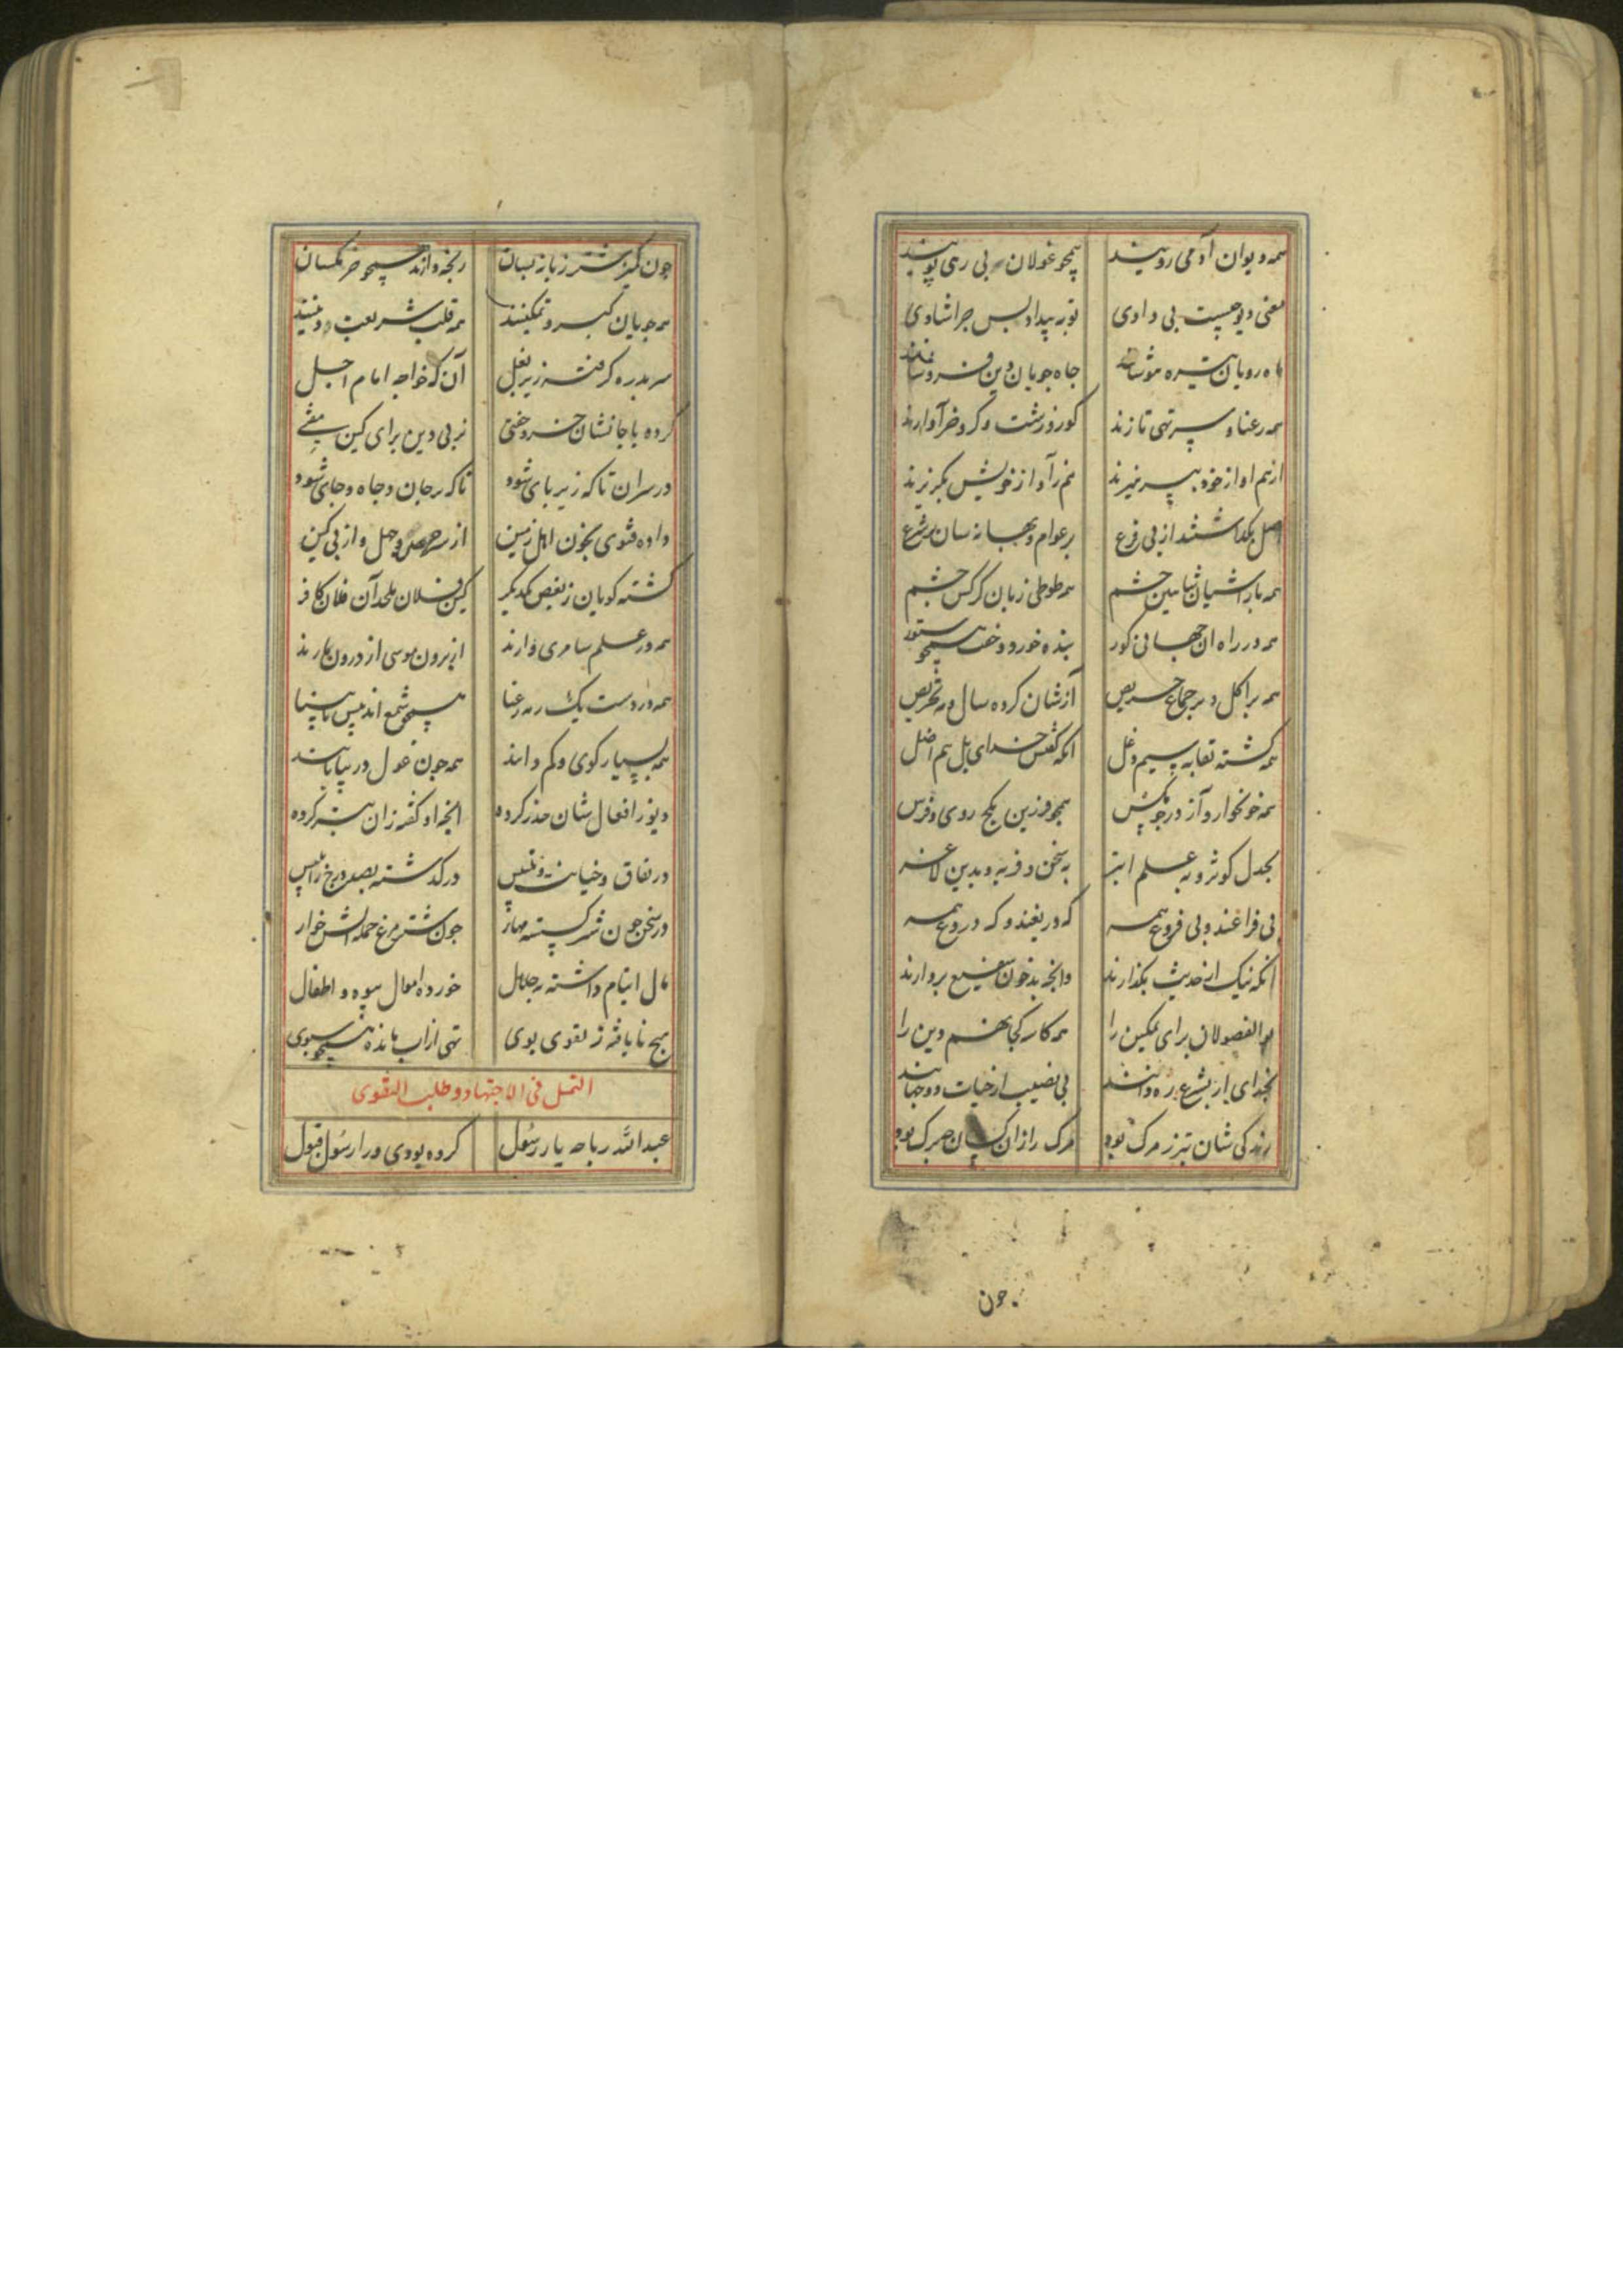 همه دیوان آدمی رویند همچو غولان بی رهی پویند
معنی دیو چیست بی دادی تو به بیداد پس چرا شادی
ماه رویان تیره هوشانند جاه جویان دین فروشانند
همه رعنا و سر تهی تازند کور و زشت و کر و خر آوازند
از هم آواز خود بپرهیزند هم ز آواز خویش بگریزند
اصل بگذاشتند از پی فرع بر عوام و بهانه سان بر شرع
همه باز آشیان شاهین خشم همه طوطی زبان کرکس چشم
همه در راه آن جهانی کور بنده خورد و خفت همچو ستور
همه بر اکل و بر جماع حریص آزشان کرده سال و مه تحریص
همه گشته بسیم و غل آنکه گفتش خدای بل هم اضل
همه خونخوار و آز در جو همچو فرزین بکج روی و فرس
بجدل کوثر و به علم ابتر به سخن فربه و بدین لاغر
بی فراغند و بی فروغ همه که دریغند و که دروغ همه
آنکه نیک از حدیث بگذارند وانچه بد خون بردارند
بوالفضولان برای تمکین را همه کاسه کجا نهم دین را
بخدای ار بشرع ره دانند بی نصیب از حیات دوجهانند
زندگی شان بتر ز مرگ بود مرگ را زان کسان چه برگ بود
چون
چون شتر ز بیان رنجه دارند همچو خر مگسان
همه جویان کبر و تمکینند همه قلب شریعت و دینند
سر بدره گرفته زیر بغل آن که خواجه امام اجل
کرده با جانشان خرد خفتی نز پی دین برای کین مفتی
در سران تا که زیر پای شود تا که بر جان و جاه و جای شود
داده فتوی بخون اهل زمین از سر حرص و جهل و از پی کین
گشته گویان ز بغض یکدیگر کین فلان ملحد آن فلان کافر
همه در علم سامری وارند از برون موسی از درون مارند
همه در دست یک رمه رعنا همچو شمع اند پیش نابینا
همه بسیار گوی و کم دانند همه چون غول در بیابانند
دیو ز افعال شان حذر کرده آنچه او گفته زان بتر کرده
در نفاق و خیانت و تلبیس در گذشته بصد درج ز ابلیس
در سخن چون شتر گسسته مهار چون شترمرغ جمله آتش خوار
مال ایتام داشته به حلال خورده اموال بیوه و اطفال
هیچ نایافته ز تقوی بوی تهی از آب مانده همچو سبوی
التمثل فی الاجتهاد و طلب التقوی
عبدالله رباحه یار رسول کرده بودی ورا رسول قبول